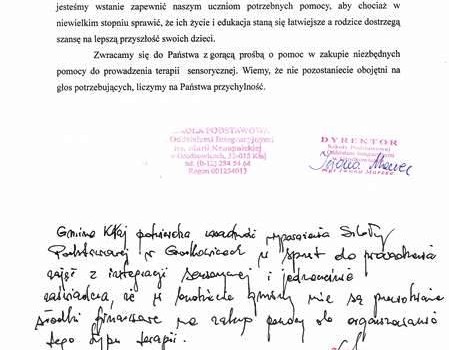 jesteśmy wstanie zapewnić naszym uczniom potrzebnych pomocy, aby chociaż w
niewielkim stopniu sprawić, że ich życie i edukacja staną się łatwiejsze a rodzice dostrzegą
szansę na lepszą przyszłość swoich dzieci.
Zwracamy się do Państwa z gorącą prośbą o pomoc w zakupie niezbędnych
pomocy do prowadzenia terapii sensorycznej. Wiemy, że nie pozostaniecie obojętni na
głos potrzebujących, liczymy na Państwa przychylność.
SZKOŁA PODSTAWOWA
z Oddziałami Integracyjnymi
DYREKTOR
Szkoły Podstawowej
Gmina Kłaj potwierdza zasadność wyposażenia Szkoły
Podstawowej w w sprzęt do prowadzenia
zajęć z integracji sensorycznej i jednocześnie
zaświadcza, że w budżecie gminy nie są
środki finansowe na zakup pomocy do organizowania
tego typu terapii.